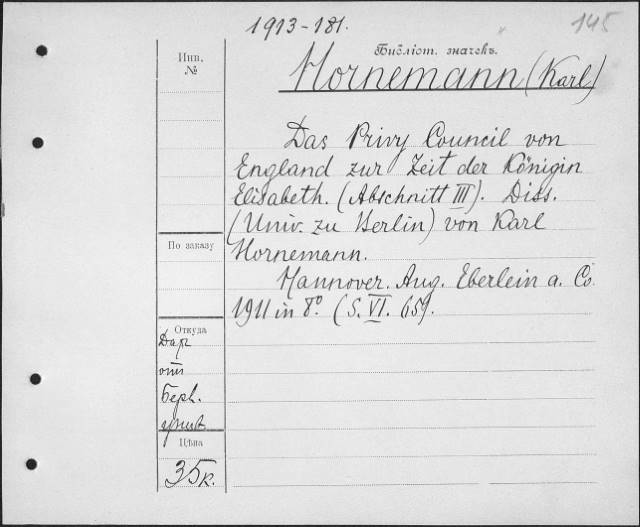 1913-181.
145
Библіот. значекъ.
Инв. №
Hornemann (Karl)
Das Privy Council von
England zur Zeit der Königin
Elisabeth. (Abschnitt III). Diss.
(Univ. zu Berlin) von Karl
Hornemann.
Hannover. Aug. Eberlein a. Co.
1911 in 8º. (S. VI. 65).
По заказу
Откуда
Дар
от
Берл.
унив.
Цѣна
35 к.